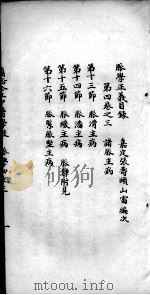 脉學正義目錄
第四卷之三 諸脉主病 嘉定張壽頤山雷編次
第十三節 脉滑主病
第十四節 脉濇主病
第十五節 脉緩主病 脉緯附見
第十六節 脉緊脉堅主病